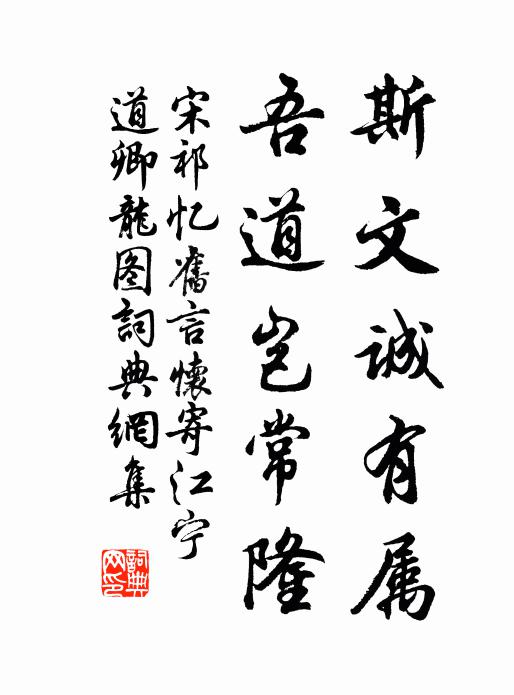 斯文诚有属
吾道岂常隆
宋祁忆旧言懷寄江宁
道卿龍图詞典網集
詞典网印